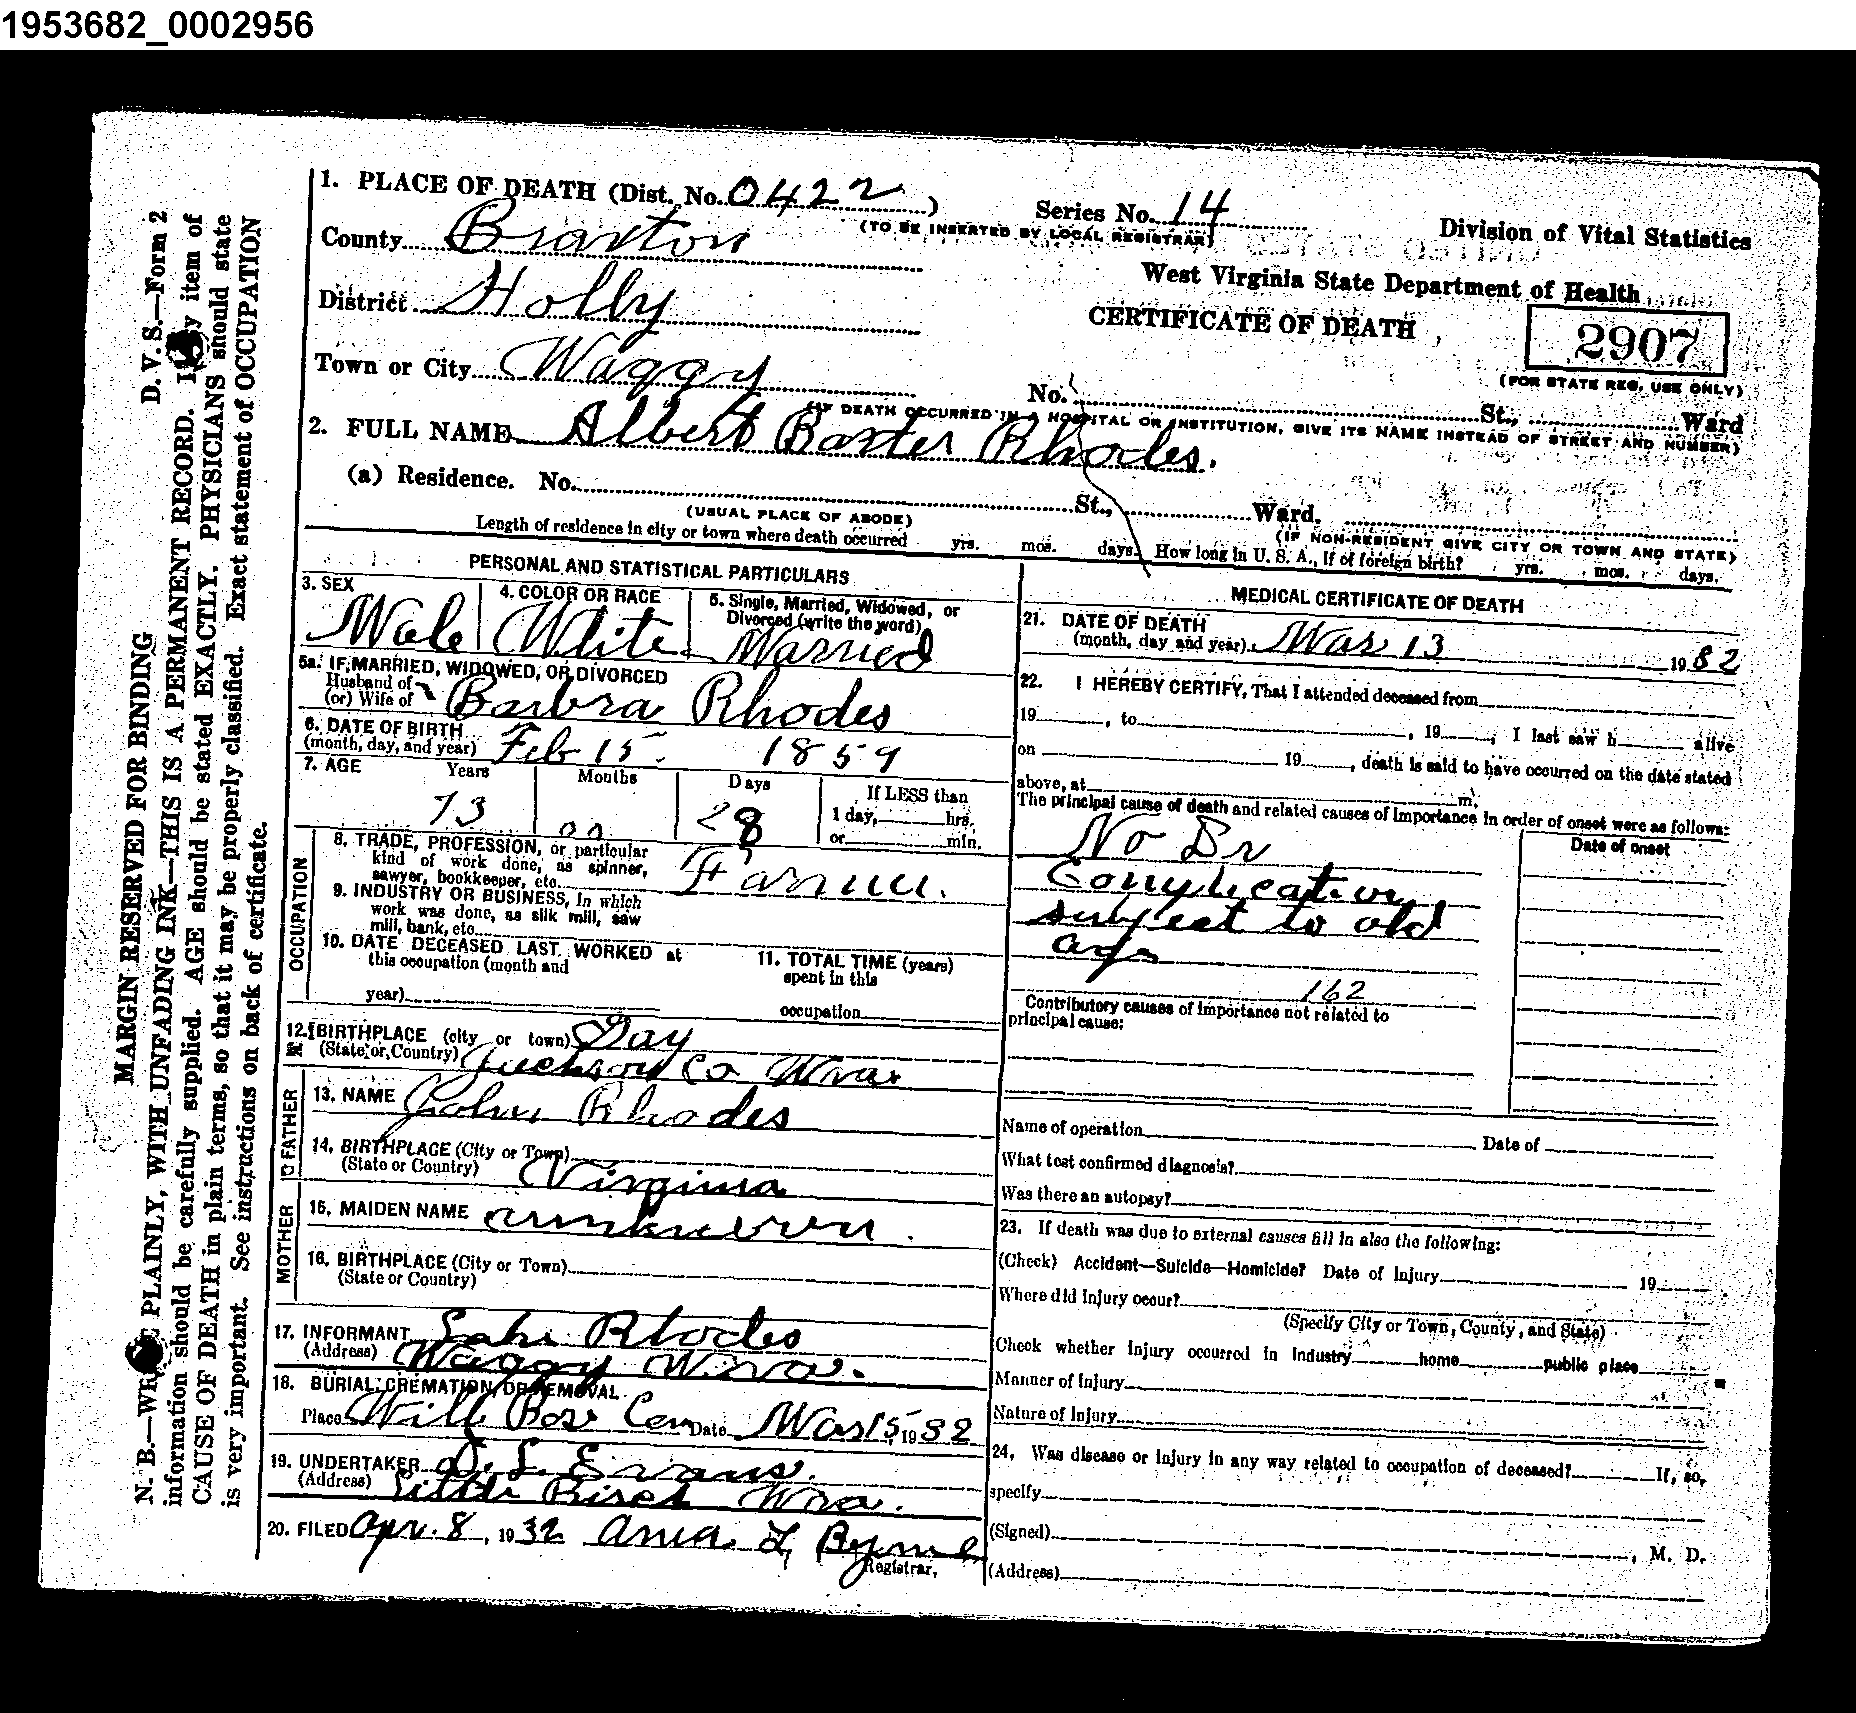 1953682_0002956
1. PLACE OF DEATH (Dist. No. 0422)
Series No. 14
(TO BE INSERTED BY LOCAL REGISTRAR)
County Braxton
District Holly
Town or City Waggy
Division of Vital Statistics
West Virginia State Department of Health
CERTIFICATE OF DEATH
2907
(FOR STATE REG. USE ONLY)
No. St., Ward
(IF DEATH OCCURRED IN A HOSPITAL OR INSTITUTION, GIVE ITS NAME INSTEAD OF STREET AND NUMBER)
2. FULL NAME Albert Baxter Rhodes.
(a) Residence. No. St., Ward.
(USUAL PLACE OF ABODE)
(IF NON-RESIDENT GIVE CITY OR TOWN AND STATE)
Length of residence in city or town where death occurred yrs. mos. days. How long in U. S. A., if of foreign birth? yrs. mos. days.
PERSONAL AND STATISTICAL PARTICULARS
3. SEX
Male
4. COLOR OR RACE
White
5. Single, Married, Widowed, or
Divorced (write the word)
Married
5a. IF MARRIED, WIDOWED, OR DIVORCED
Husband of
(or) Wife of Barbra Rhodes
6. DATE OF BIRTH
(month, day, and year) Feb 15. 1859
7. AGE Years Months Days If LESS than
73 00 28 1 day, hrs.
or min.
OCCUPATION
8. TRADE, PROFESSION, or particular
kind of work done, as spinner,
sawyer, bookkeeper, etc. Farmer.
9. INDUSTRY OR BUSINESS, in which
work was done, as silk mill, saw
mill, bank, etc.
10. DATE DECEASED LAST WORKED at
this occupation (month and
year)
11. TOTAL TIME (years)
spent in this
occupation
12. BIRTHPLACE (city or town) Gay
(State or Country) Jackson Co Wva.
FATHER
13. NAME John Rhodes
14. BIRTHPLACE (City or Town)
(State or Country) Virginia
MOTHER
15. MAIDEN NAME unknown.
16. BIRTHPLACE (City or Town)
(State or Country)
17. INFORMANT Rhodes
(Address) Waggy W.va.
18. BURIAL, CREMATION, OR REMOVAL
Place Will Rose Cem Date Mar 15, 1932
19. UNDERTAKER D. L. Evans.
(Address) Little Birch Wva.
20. FILED Apr. 8, 1932 Anna L. Byrne
Registrar.
MEDICAL CERTIFICATE OF DEATH
21. DATE OF DEATH
(month, day and year) Mar 13 1932
22. I HEREBY CERTIFY, That I attended deceased from
19 , to , 19 , I last saw h alive
on 19 , death is said to have occurred on the date stated
above, at m.
The principal cause of death and related causes of importance in order of onset were as follows:
Date of onset
No Dr
Complication
subject to old
age
162
Contributory causes of importance not related to
principal cause:
Name of operation Date of
What test confirmed diagnosis?
Was there an autopsy?
23. If death was due to external causes fill in also the following:
(Check) Accident—Suicide—Homicide? Date of Injury 19
Where did Injury occur?
(Specify City or Town, County, and State)
Check whether Injury occurred in Industry home public place
Manner of Injury
Nature of Injury
24. Was disease or Injury in any way related to occupation of deceased? If, so,
specify
(Signed) , M. D.
(Address)
MARGIN RESERVED FOR BINDING
D. V. S.—Form 2
N. B.—WRITE PLAINLY, WITH UNFADING INK—THIS IS A PERMANENT RECORD. Every item of
information should be carefully supplied. AGE should be stated EXACTLY. PHYSICIANS should state
CAUSE OF DEATH in plain terms, so that it may be properly classified. Exact statement of OCCUPATION
is very important. See instructions on back of certificate.